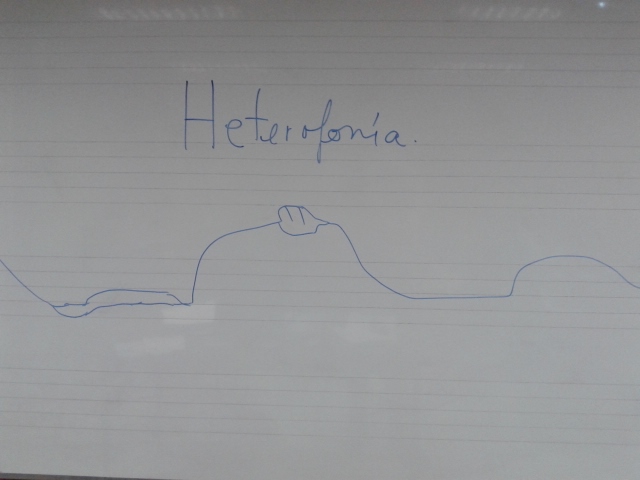 Heterofonía.